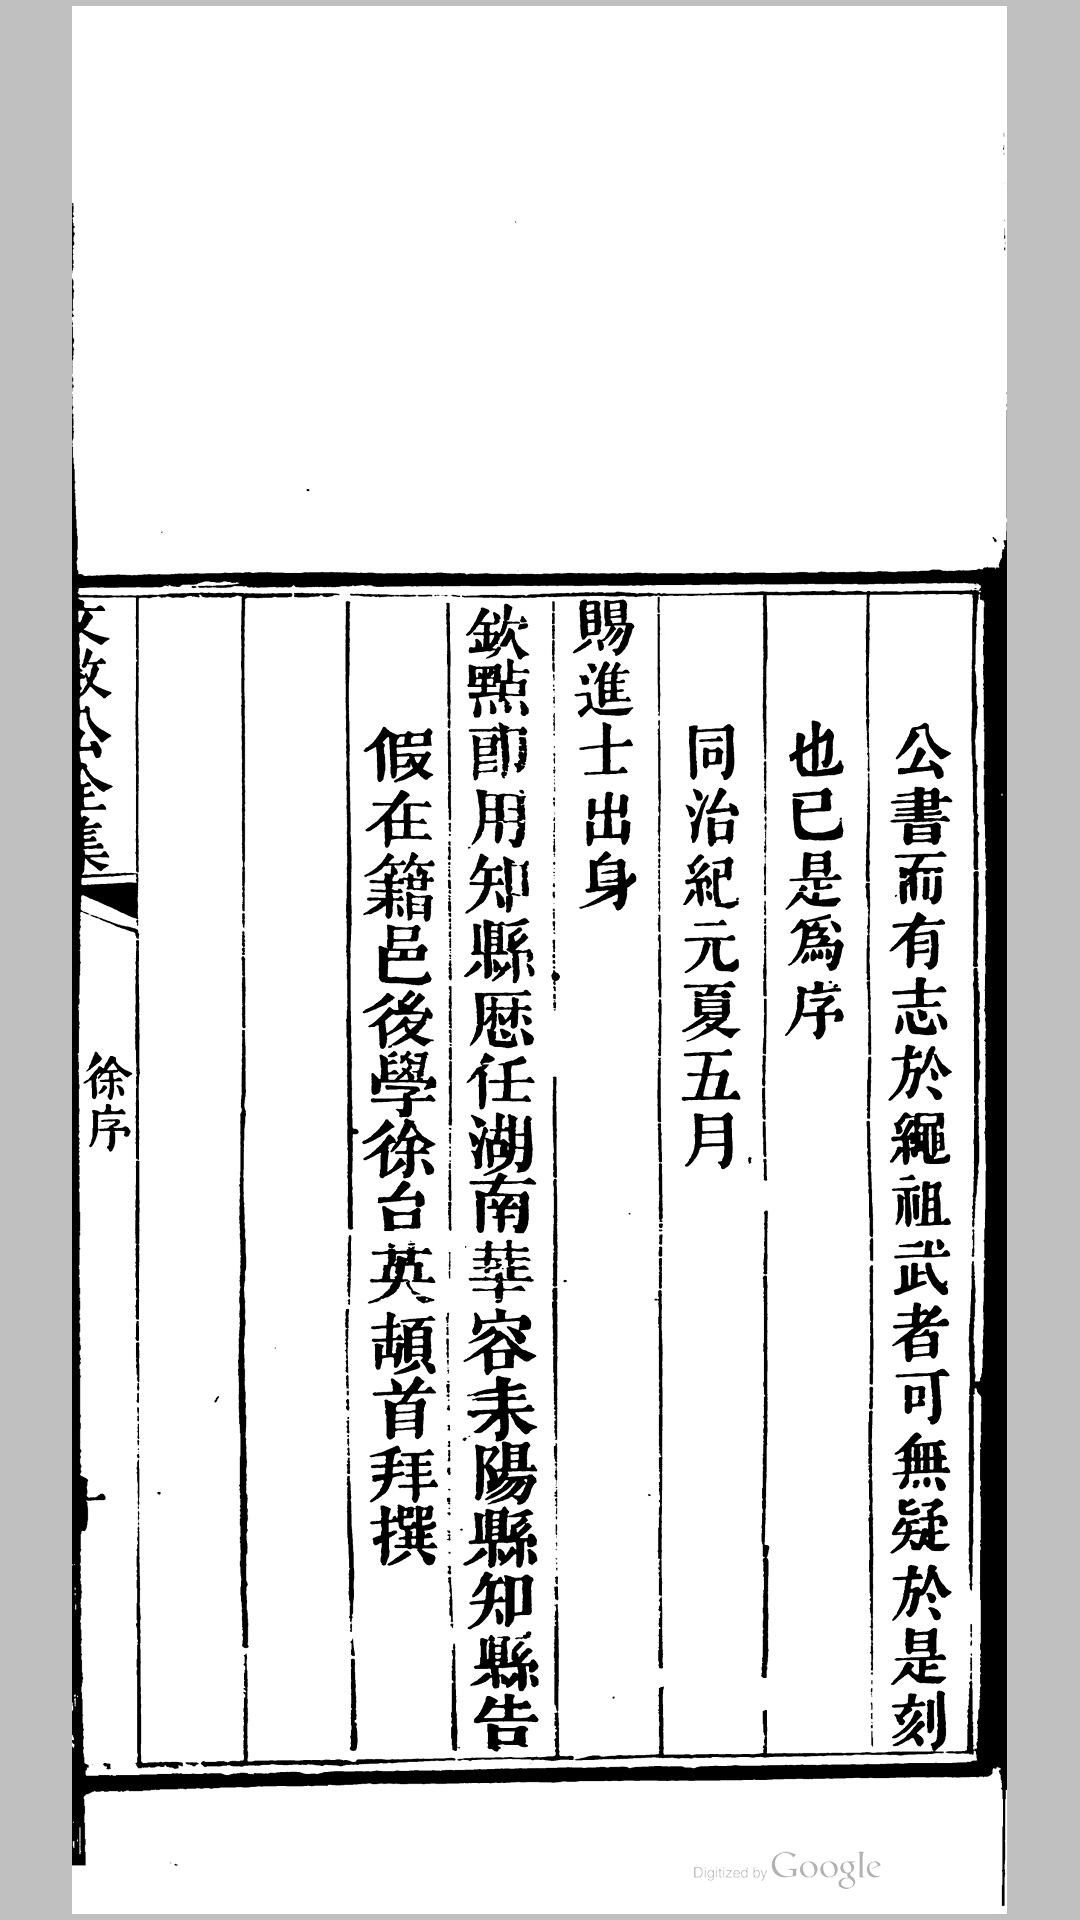 公書而有志於繩祖武者可無疑於是刻
也已是爲序
同治紀元夏五月
賜進士出身
欽點即用知縣歴任湖南華容耒陽縣知縣告
假在籍邑後學徐台英頓首拜撰
文敏公全集
徐序
十
Digitized by Google